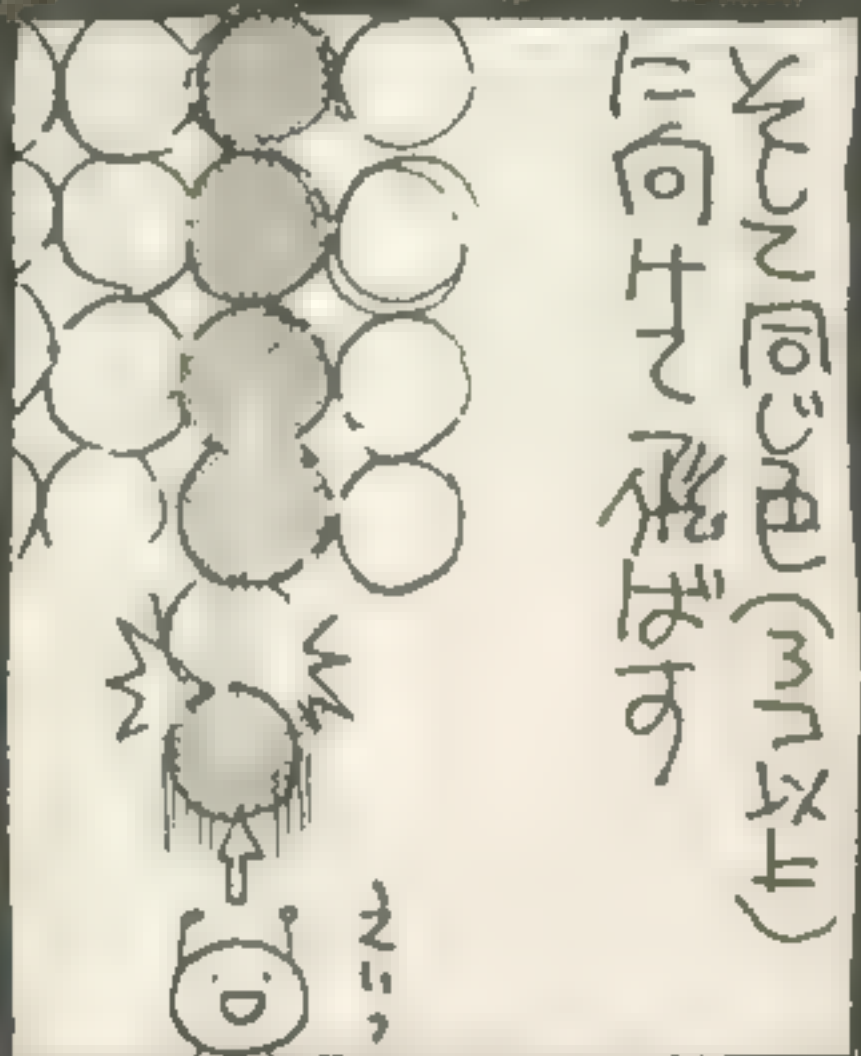 そして同じ色(3つ以上)
に向けて飛ばす
えいっ